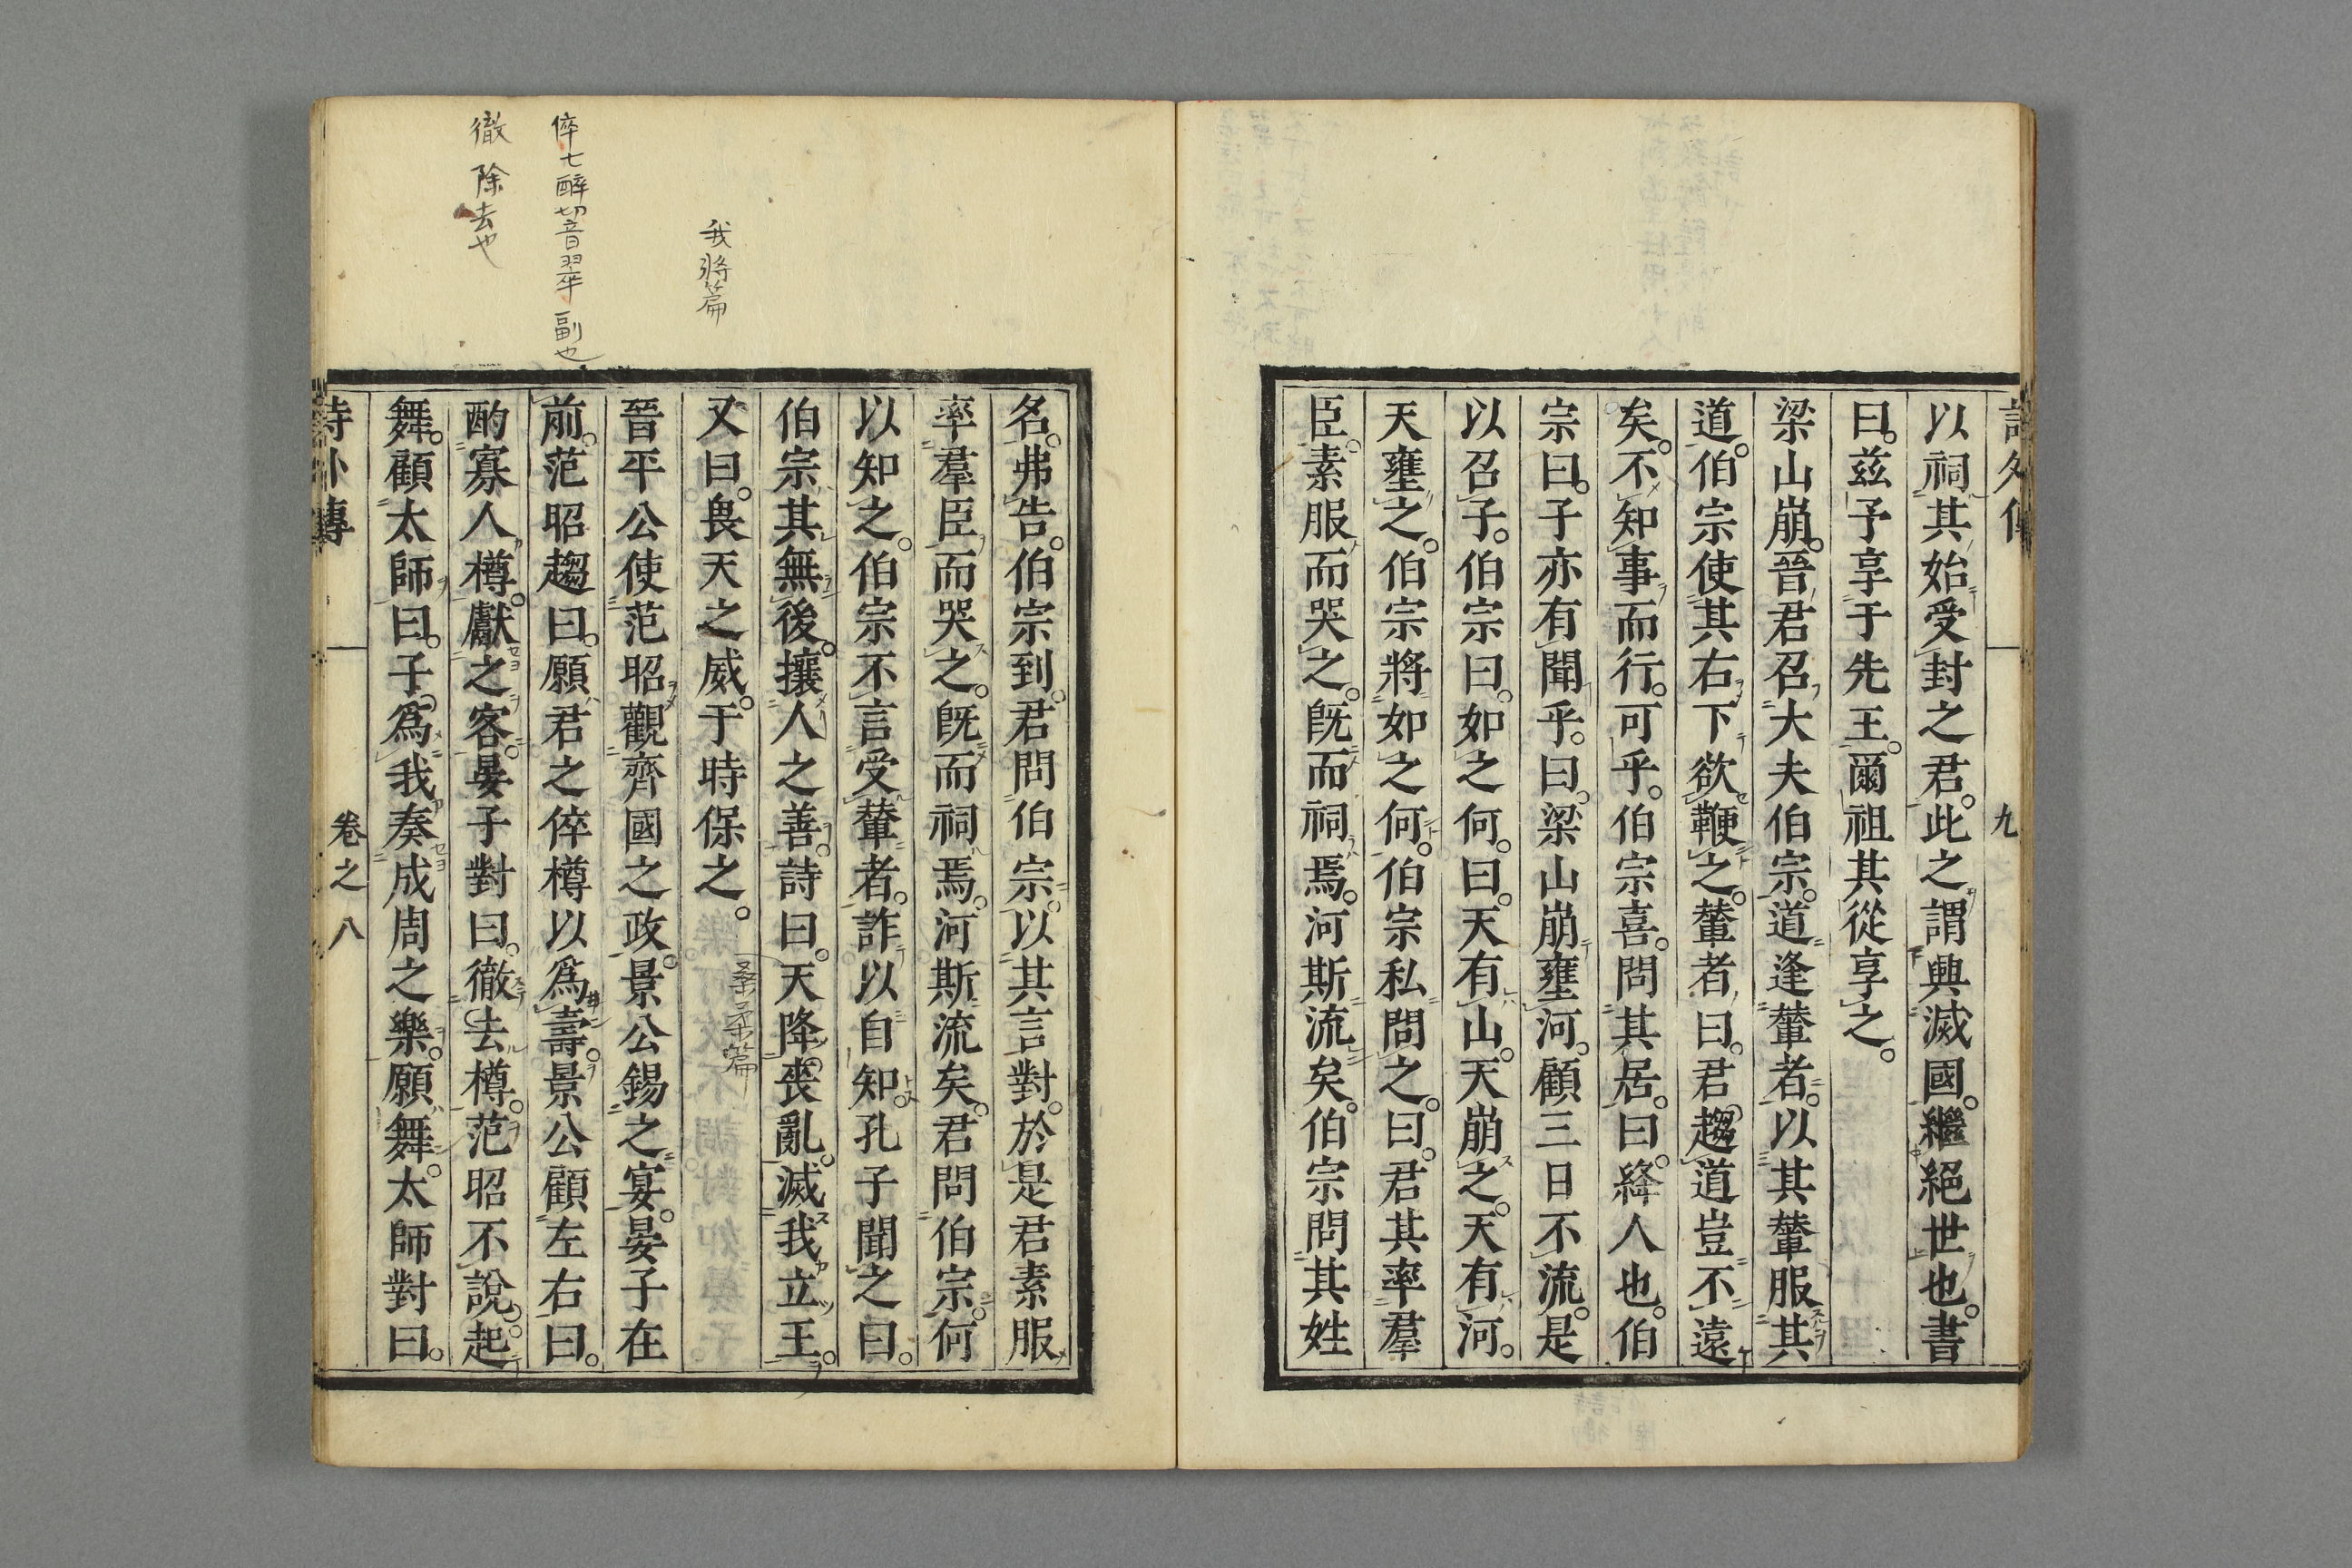 以祠其始受封之君。此之謂興滅國。繼絕世也。書
曰。玆予享于先王。爾祖其從享之。
梁山崩。晉君召大夫伯宗。道逢輦者。以其輦服其
道。伯宗使其右下欲鞭之。輦者曰。君趨道豈不遠
矣。不知事而行。可乎。伯宗喜。問其居。曰。絳人也。伯
宗曰。子亦有聞乎。曰。梁山崩壅河。顧三日不流。是
以召子。伯宗曰。如之何。曰。天有山。天崩之。天有河。
天壅之。伯宗將如之何。伯宗私問之。曰。君其率羣
臣。素服而哭之。旣而祠焉。河斯流矣。伯宗問其姓
九
名。弗告。伯宗到。君問伯宗。以其言對。於是君素服
率羣臣而哭之。旣而祠焉。河斯流矣。君問伯宗。何
以知之。伯宗不言受輦者。詐以自知。孔子聞之曰。
伯宗其無後。攘人之善。詩曰。天降喪亂。滅我立王。
又曰。畏天之威。于時保之。
桑柔篇
我將篇
晉平公使范昭觀齊國之政。景公錫之宴。晏子在
前。范昭趨曰。願君之倅樽以爲壽。景公顧左右曰。
倅七醉切音翠 副也
酌寡人樽。獻之客。晏子對曰。徹去樽。范昭不說。起
徹 除去也
舞。顧太師曰。子爲我奏成周之樂。願舞。太師對曰。
詩外傳
卷之八